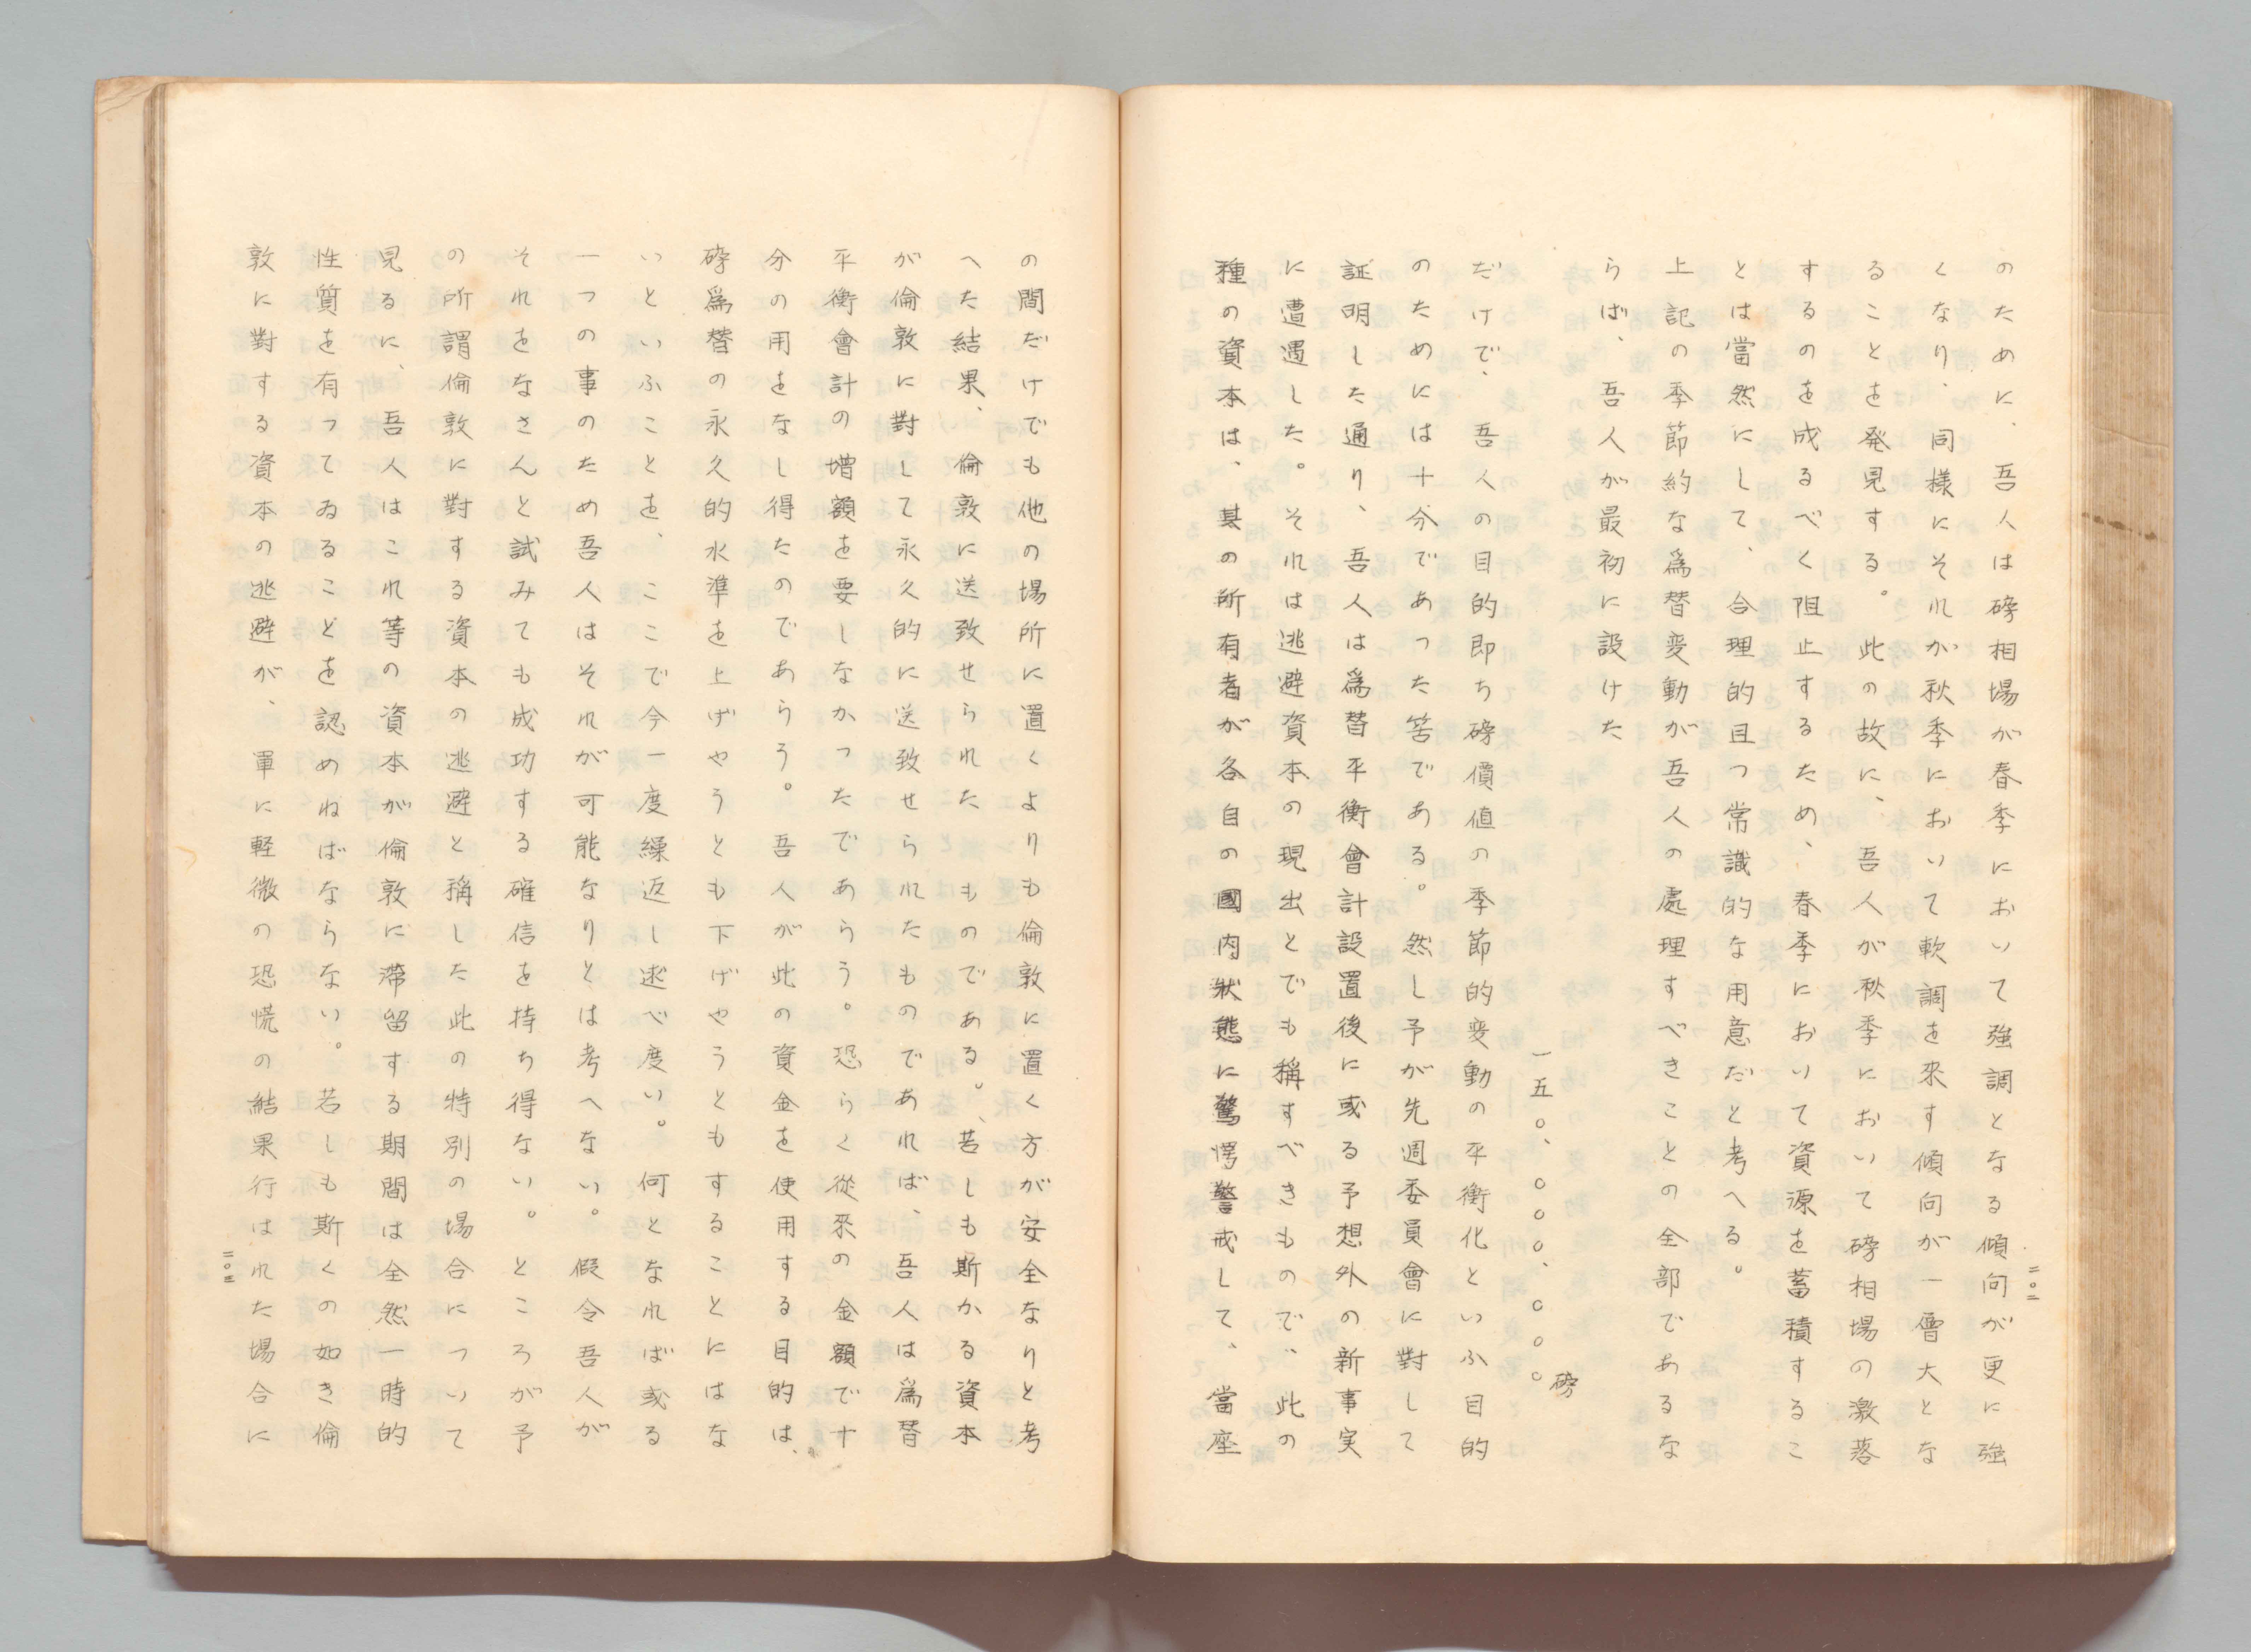 二〇二
のために、吾人は磅相場が春季において強調となる傾向が更に強
くなり、同様にそれが秋季において軟調を来す傾向が一層大とな
ることを発見する。此の故に、吾人が秋季において磅相場の激落
するのを成るべく阻止するため、春季において資源を蓄積するこ
とは當然にして、合理的且つ常識的な用意だと考へる。
上記の季節約な為替変動が吾人の處理すべきことの全部であるな
らば、吾人が最初に設けた
磅
一五〇、〇〇〇、〇〇〇
だけで、吾人の目的即ち磅價値の季節的変動の平衡化といふ目的
のためには十分であった筈である。然し予が先週委員會に對して
証明した通り、吾人は為替平衡會計設置後に或る予想外の新事実
に遭遇した。それは逃避資本の現出とでも稱すべきもので、此の
種の資本は、其の所有者が各自の國内狀態に驚愕警戒して、當座
の間だけでも他の場所に置くよりも倫敦に置く方が安全なりと考
へた結果、倫敦に送致せられたものである。、若しも斯かる資本
が倫敦に對して永久的に送致せられたものであれば、吾人は為替
平衡會計の増額を要しなかったであらう。恐らく從來の金額で十
分の用をなし得たのであらう。吾人が此の資金を使用する目的は、
磅為替の永久的水準を上げやうとも下げやうともすることにはな
いといふことを、ここで今一度繰返し逑べ度い。何となれば或る
一つの事のため吾人はそれが可能なりとは考へない。假令吾人が
それをなさんと試みても成功する確信を持ち得ない。ところが予
の所謂倫敦に對する資本の逃避と稱した此の特別の場合について
見るに、吾人はこれ等の資本が倫敦に滯留する期間は全然一時的
性質を有ってゐることを認めねばならない。若しも斯くの如き倫
敦に對する資本の逃避が、單に軽微の恐慌の結果行はれた場合に
二〇三